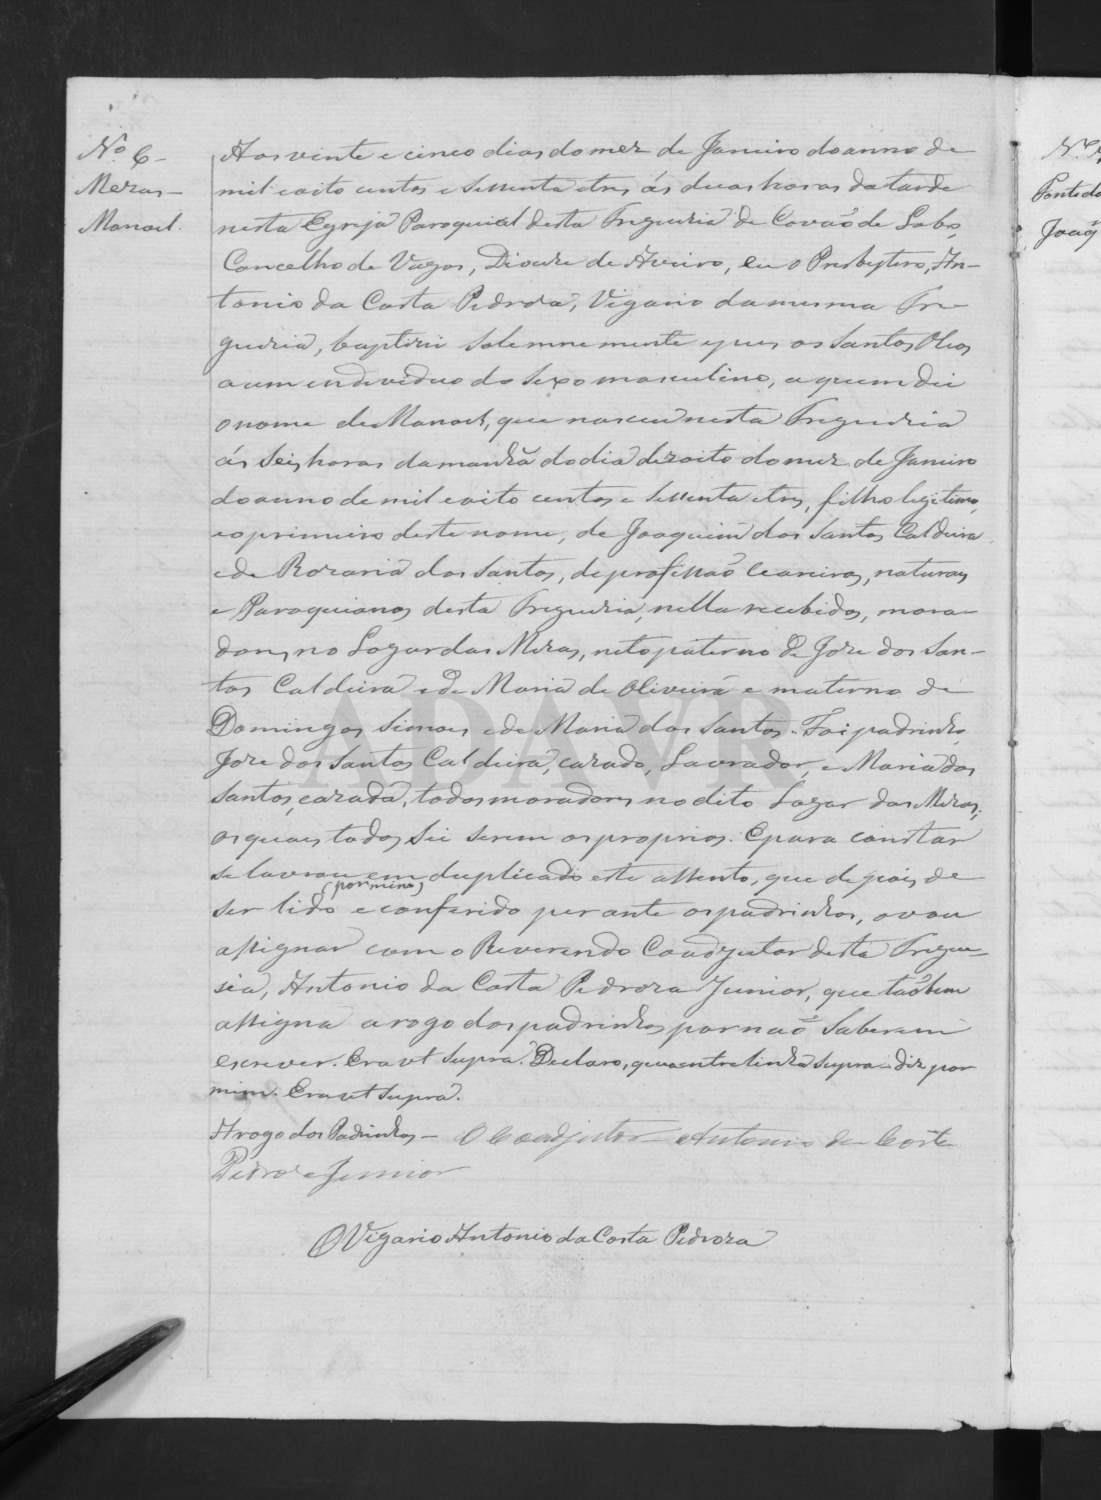 Nº 6-
Mezas-
Manoel.
Aos vinte e cinco dias do mez de Janeiro do anno de
mil e oito centos e sessenta e tres, ás duas horas da tarde
nesta Egreja Paroquial desta Freguezia de Covão de Lobo,
Concelho de Vagos, Diocese de Aveiro, eu o Presbytero, An-
tonio da Costa Pedroza, Vigario da mesma Fre-
guezia, baptizei solemnemente e puz os Santos Oleos
a um individuo do sexo masculino, a quem dei
o nome de Manoel, que nasceu nesta Freguezia
ás seis horas da manhã do dia dezoito do mez de Janeiro
do anno de mil e oito centos e sessenta e tres, filho legitimo,
e o primeiro deste nome, de Joaquim dos Santos Caldeira
e de Rozaria dos Santos, de profissão Ceareiros, naturaes
e Paroquianos desta Freguezia, nella recebidos, mora-
dores no Logar das Mezas, neto paterno de Joze dos San-
tos Caldeira e de Maria de Oliveira e materno de
Domingos Simoes e de Maria dos Santos. Foi padrinho
Joze dos Santos Caldeira, cazado, Lavrador, e Maria dos
Santos, cazada, todos moradores no dito Logar das Mezas;
os quaes todos sei serem os proprios. E para constar
se lavrou em duplicado este assento, que depois de
(por mim)
ser lido e conferido perante os padrinhos, o vou
assignar com o Reverendo Coadjutor desta Fregue-
sia, Antonio da Costa Pedroza Junior, que tãobem
assigna a rogo dos padrinhos por não saberem
escrever. Era ut supra. Declaro, que a entrelinha supra - diz por
mim. Era ut supra.
A rogo dos Padrinhos - O Coadjutor Antonio da Costa
Pedroza Junior
O Vigario Antonio da Costa Pedroza
ADAVR
Nº 7
Ponte do
Joaq